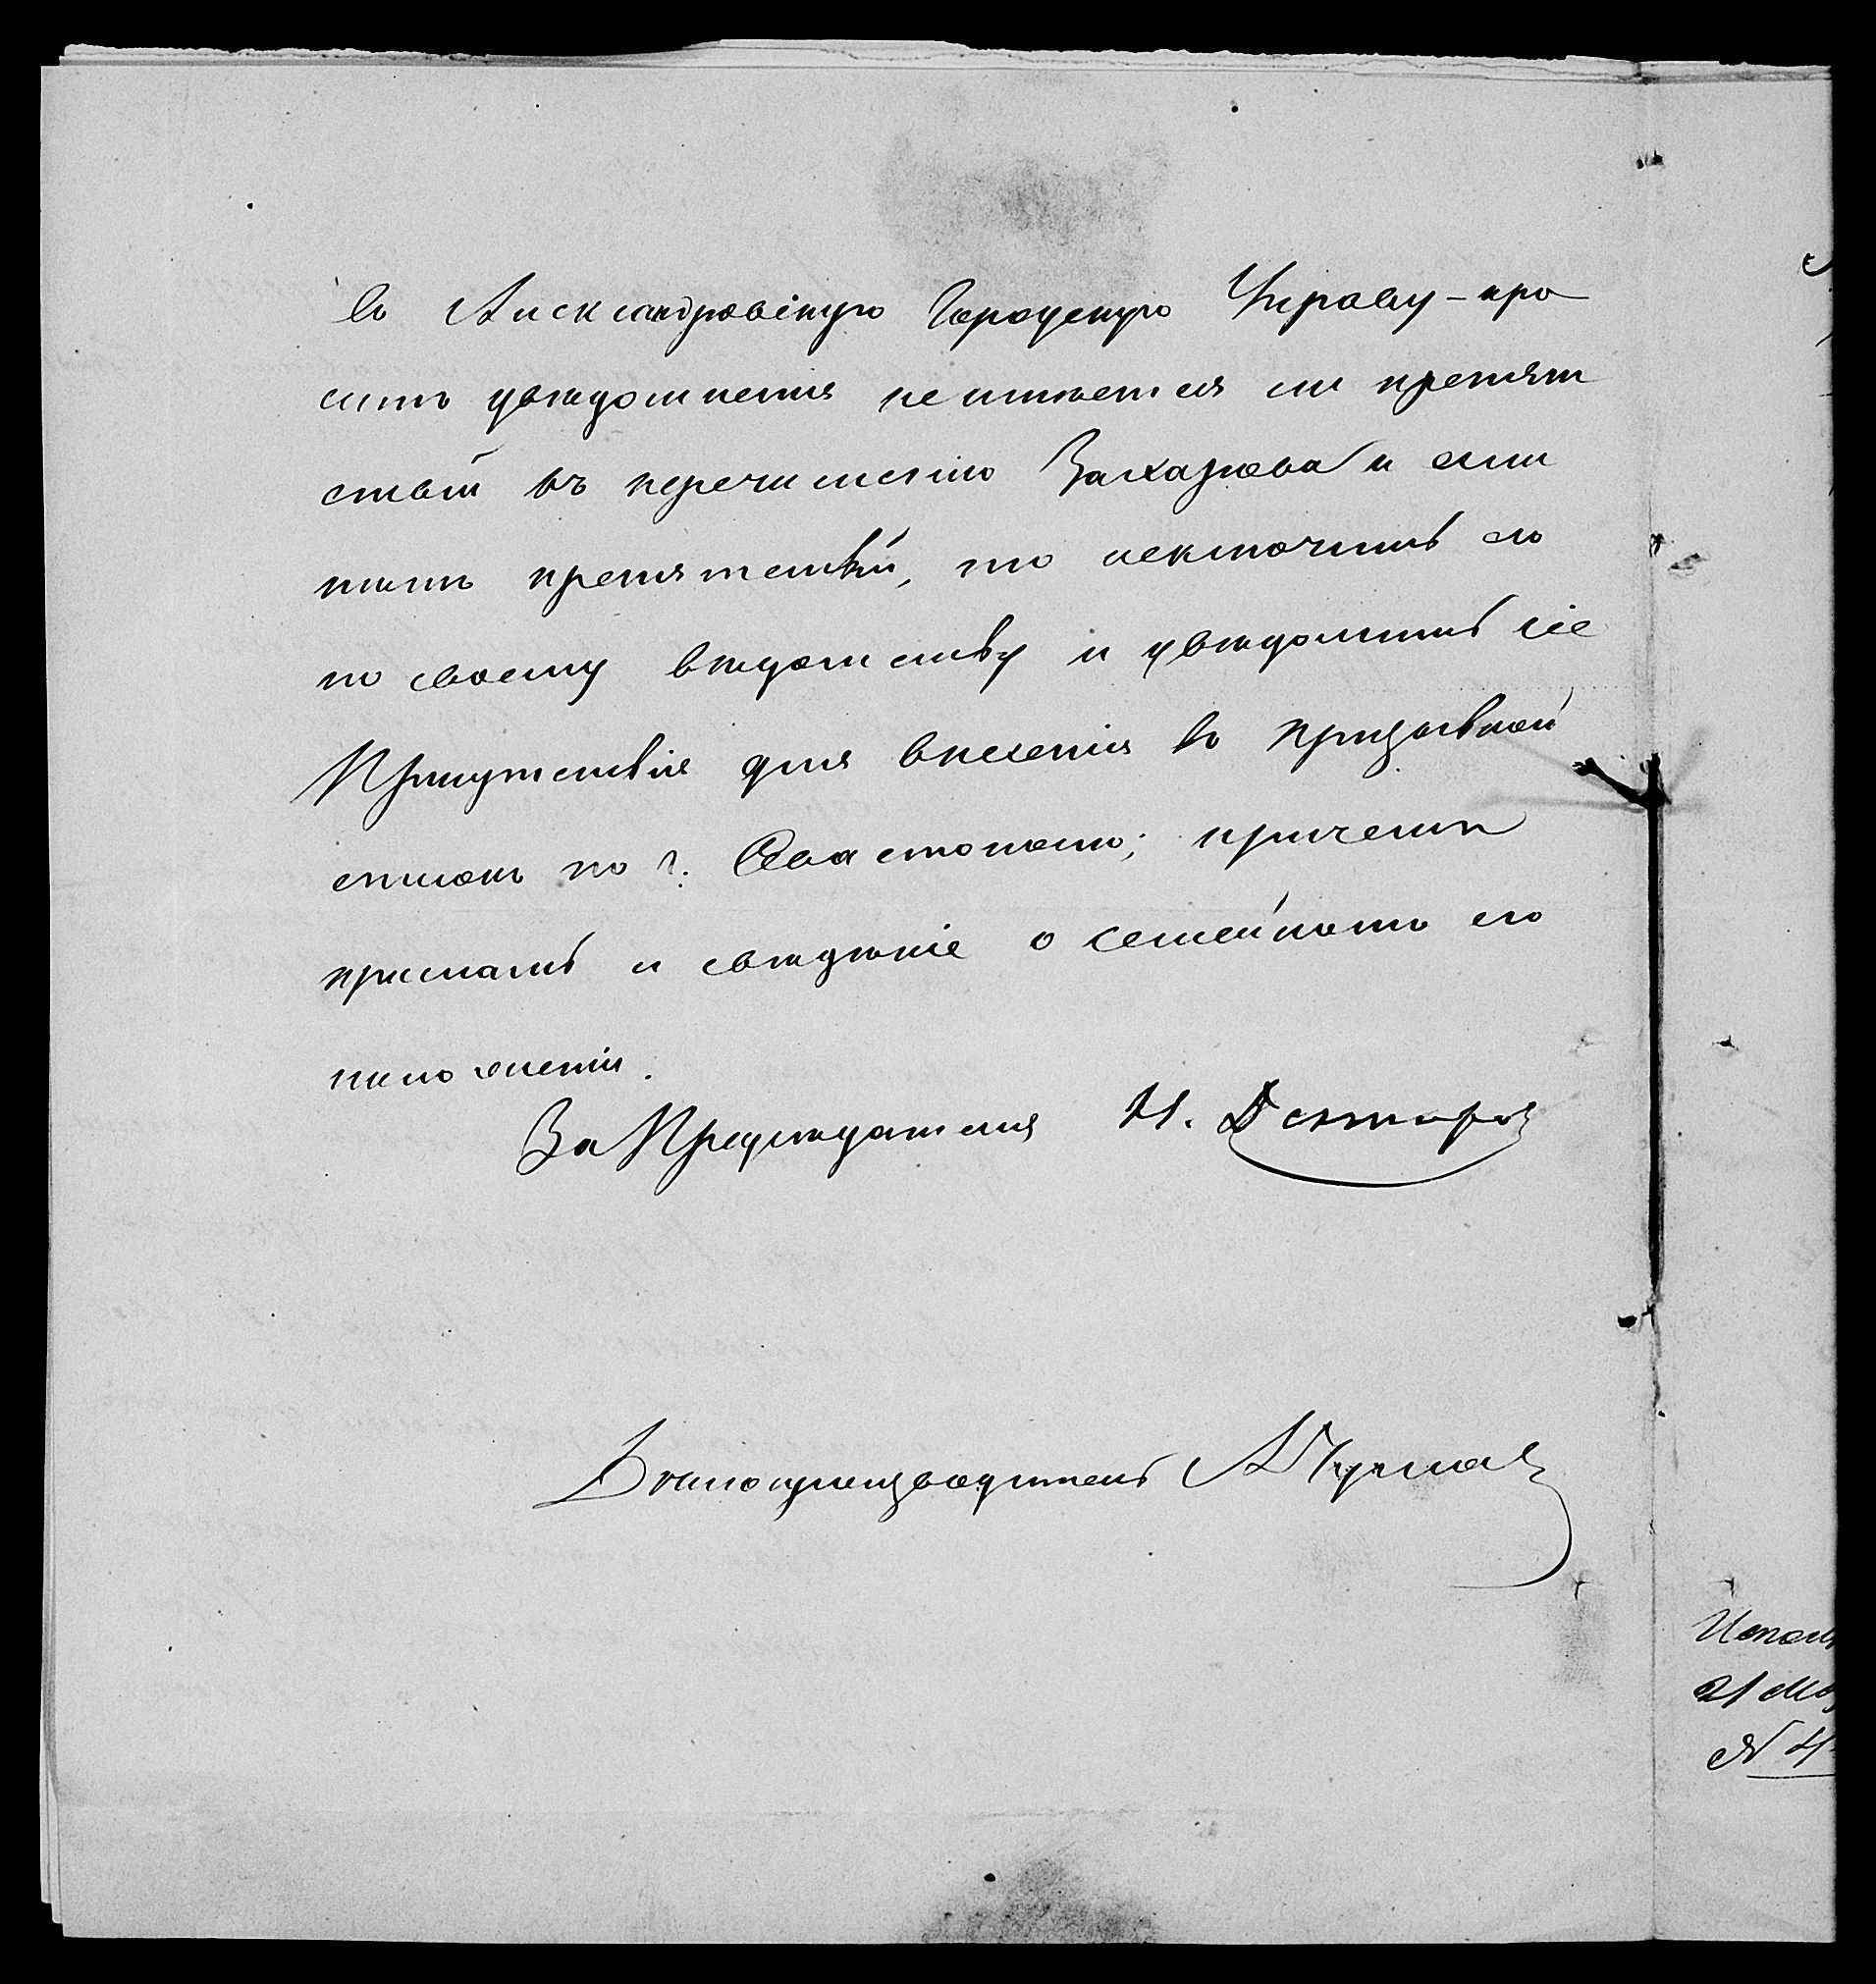 въ Александровскую Городскую Управу – про
ситъ увѣдомленія неимѣется ли препят
ствій въ перечисленію Захарова и если
нѣтъ препятствій, то исключить его
по своему вѣдомству и увѣдомить сіе
Присутствіе для внесенія въ призывной
списокъ по г. Севастополю; причемъ
прислать и свѣдѣніе о семейномъ его
положеніи.
За Предсѣдателя Н.
Дѣлопроизводитель
21
N